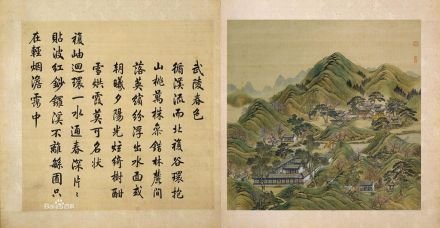 武陵春色
循溪流而北複谷環抱
山桃萬株參錯林麓間
落英繽紛浮出水面或
朝曦夕陽光炫綺樹酣
雪烘霞莫可名狀
複岫迴環一水通春深片〻
貼波紅鈔鑼溪不離繇囿只
在輕烟澹靄中
Bai百科